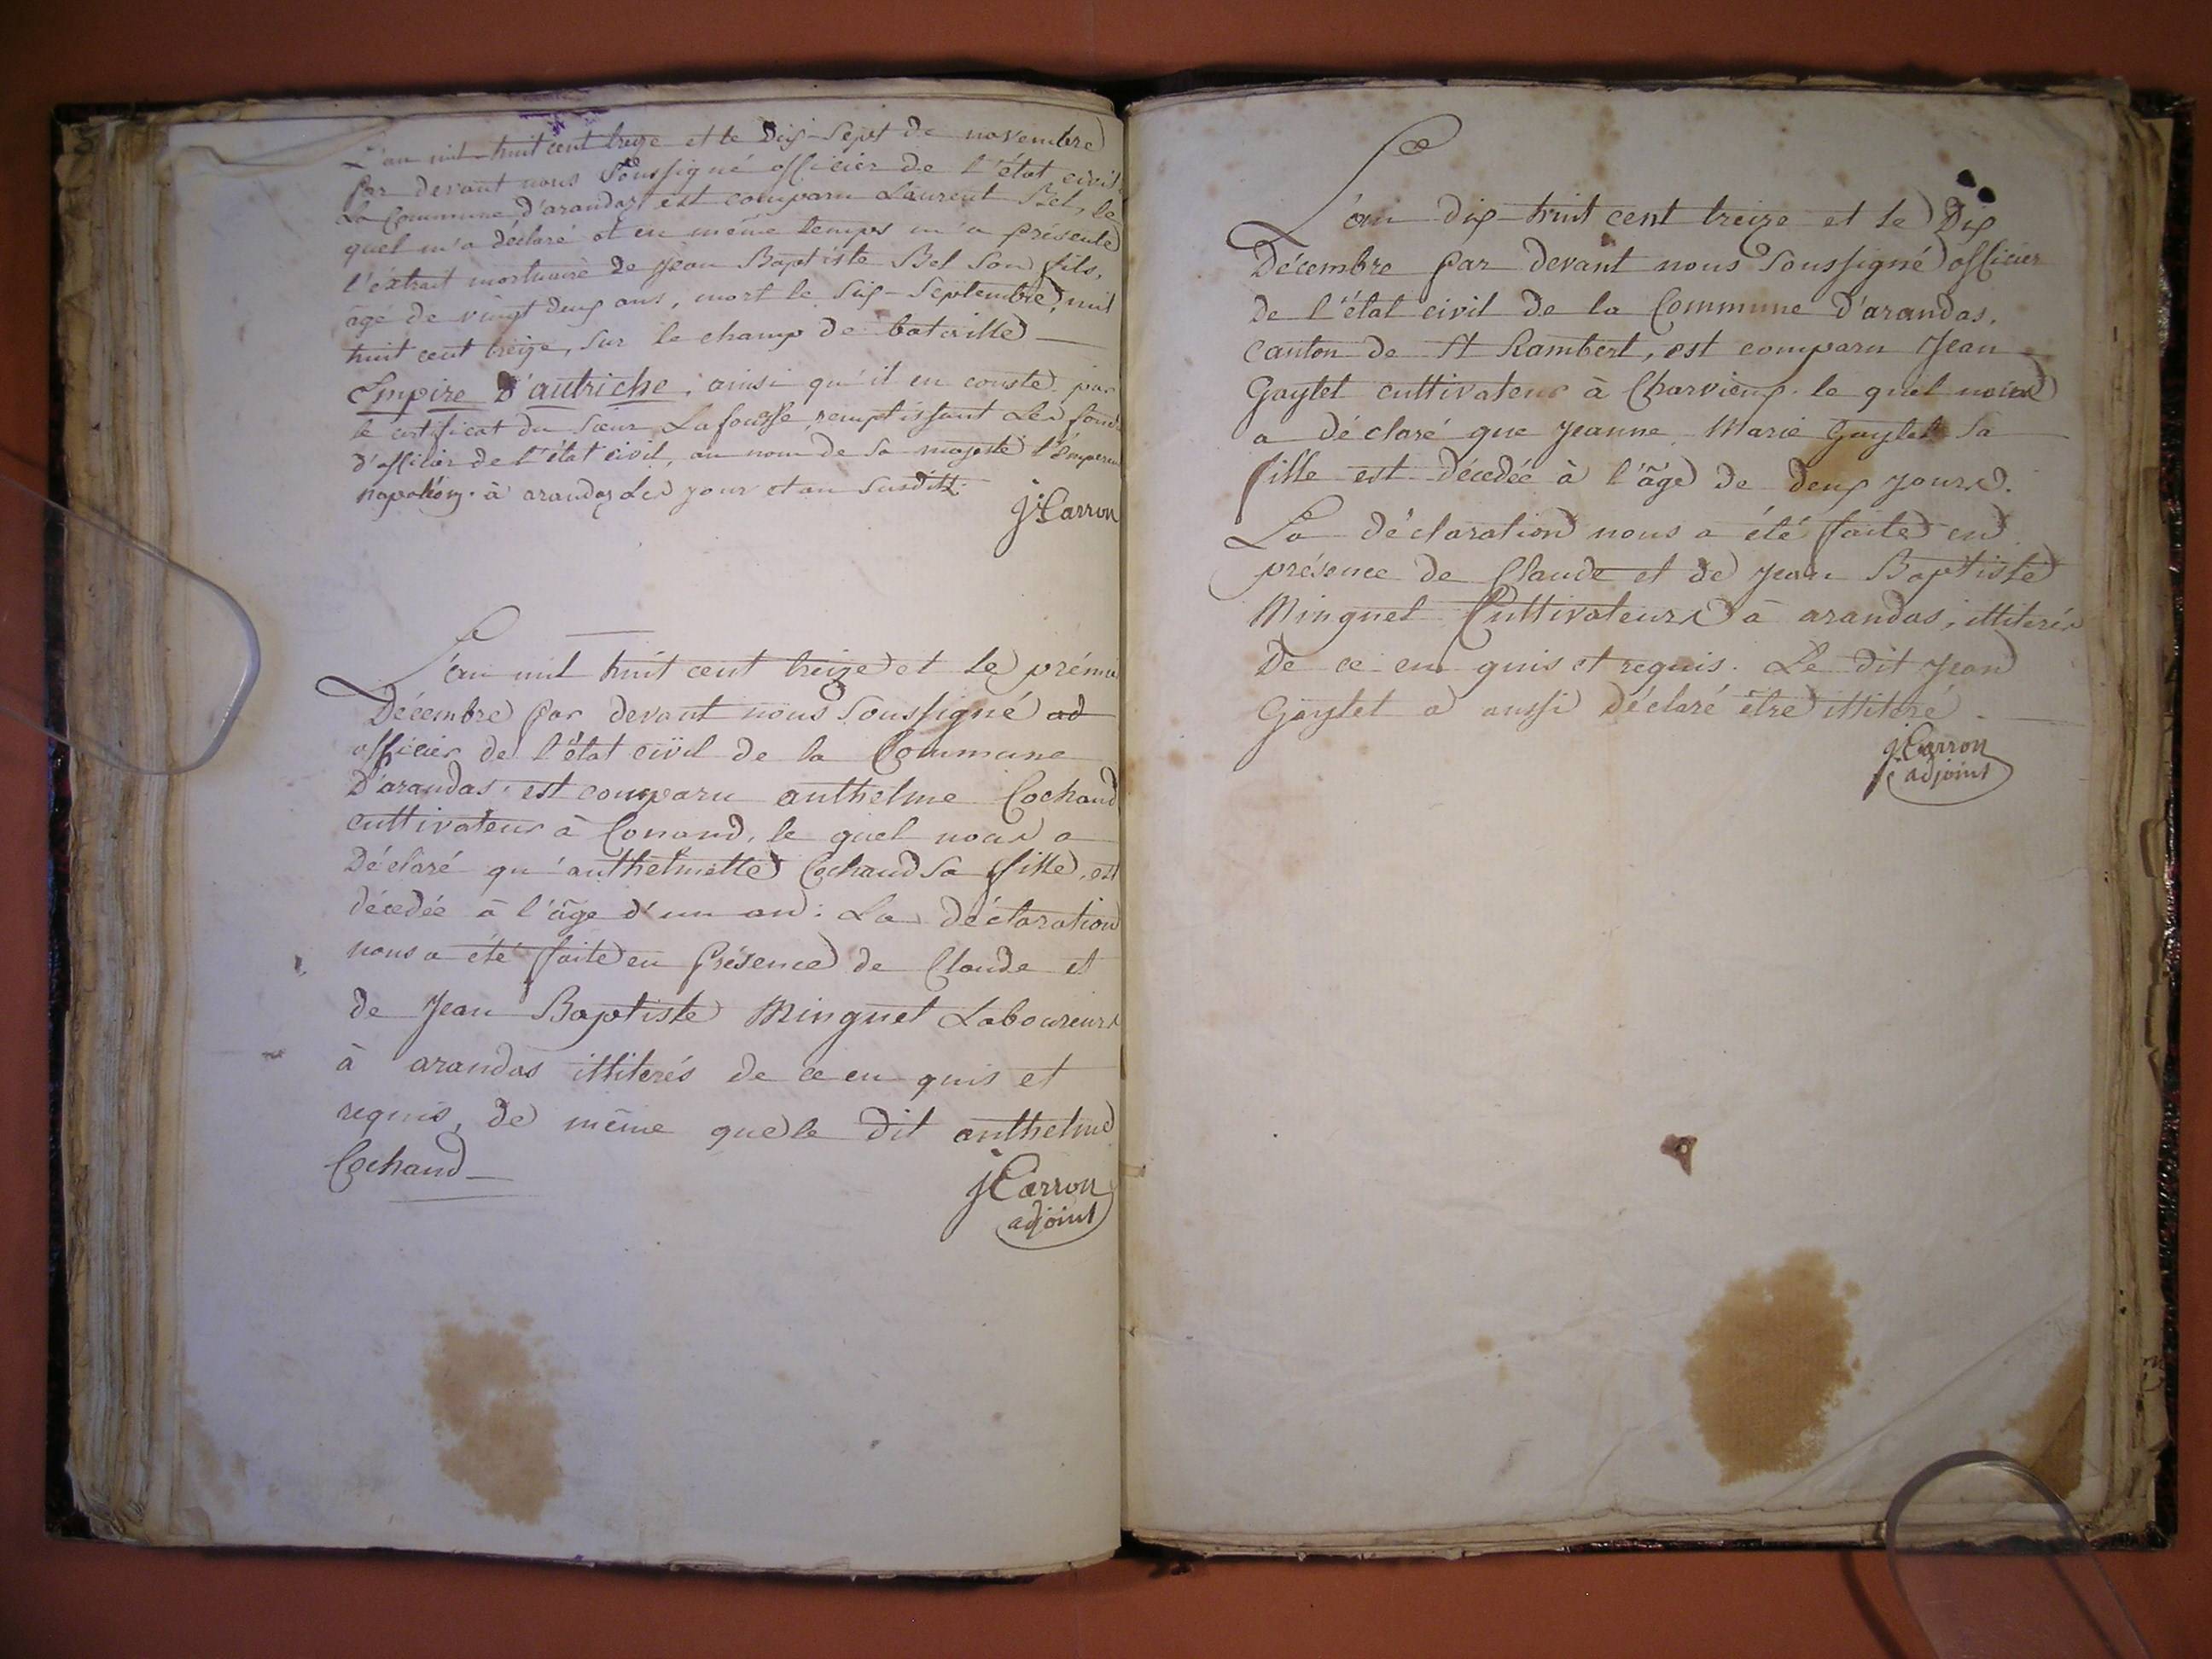 L'an mil huit cent treize et le dix-sept de novembre
par devant nous soussigné officier de l'état civil
La Commune d'arandas, est comparu Laurent Bel, le
quel m'a déclaré et en même temps m'a présenté
l'éxtrait mortuaire de Jean Baptiste Bel son fils,
âgé de vingt deux ans, mort le six-Septembre, mil
huit cent treize, sur le champ de bataille
Empire d'autriche, ainsi qu'il en conste par
le certificat du sieur Lafousse, remplissant les fond
d'officier de l'état civil, au nom de sa majesté l'Empereur
napoléon. à arandas les jour et an susdit.
J Carron
L'an mil huit cent treize et le prémier
Décembre par devant nous soussigné ad
officier de l'état civil de la Commune
D'arandas, est comparu anthelme Cochand
cultivateur à Conand, le quel nous a
Déclaré qu'anthelmette Cochand sa fille, est
décedée à l'âge d'un an: La déclaration
nous a été faite en présence de Claude et
de Jean Baptiste Minguet Laboureurs
à arandas illiterés de ce en quis et
requis, de même que le dit anthelme
Cochand
J Carron
adjoint
L'an dix-huit cent treize et le Dix
Décembre par devant nous soussigné officier
de l'état civil de la Commune D'arandas,
canton de St Rambert, est comparu Jean
Gaylet cultivateur à Charvieux. le quel nous
a déclaré que Jeanne Marie Gaylet sa
fille est décedée à l'âge de deux jours.
La déclaration nous a été faite en
présence de Claude et de Jean Baptiste
Minguet Cultivateurs à arandas, illiterés
De ce en quis et requis. Le dit Jean
Gaylet a aussi déclaré être illiteré
J Carron
adjoint